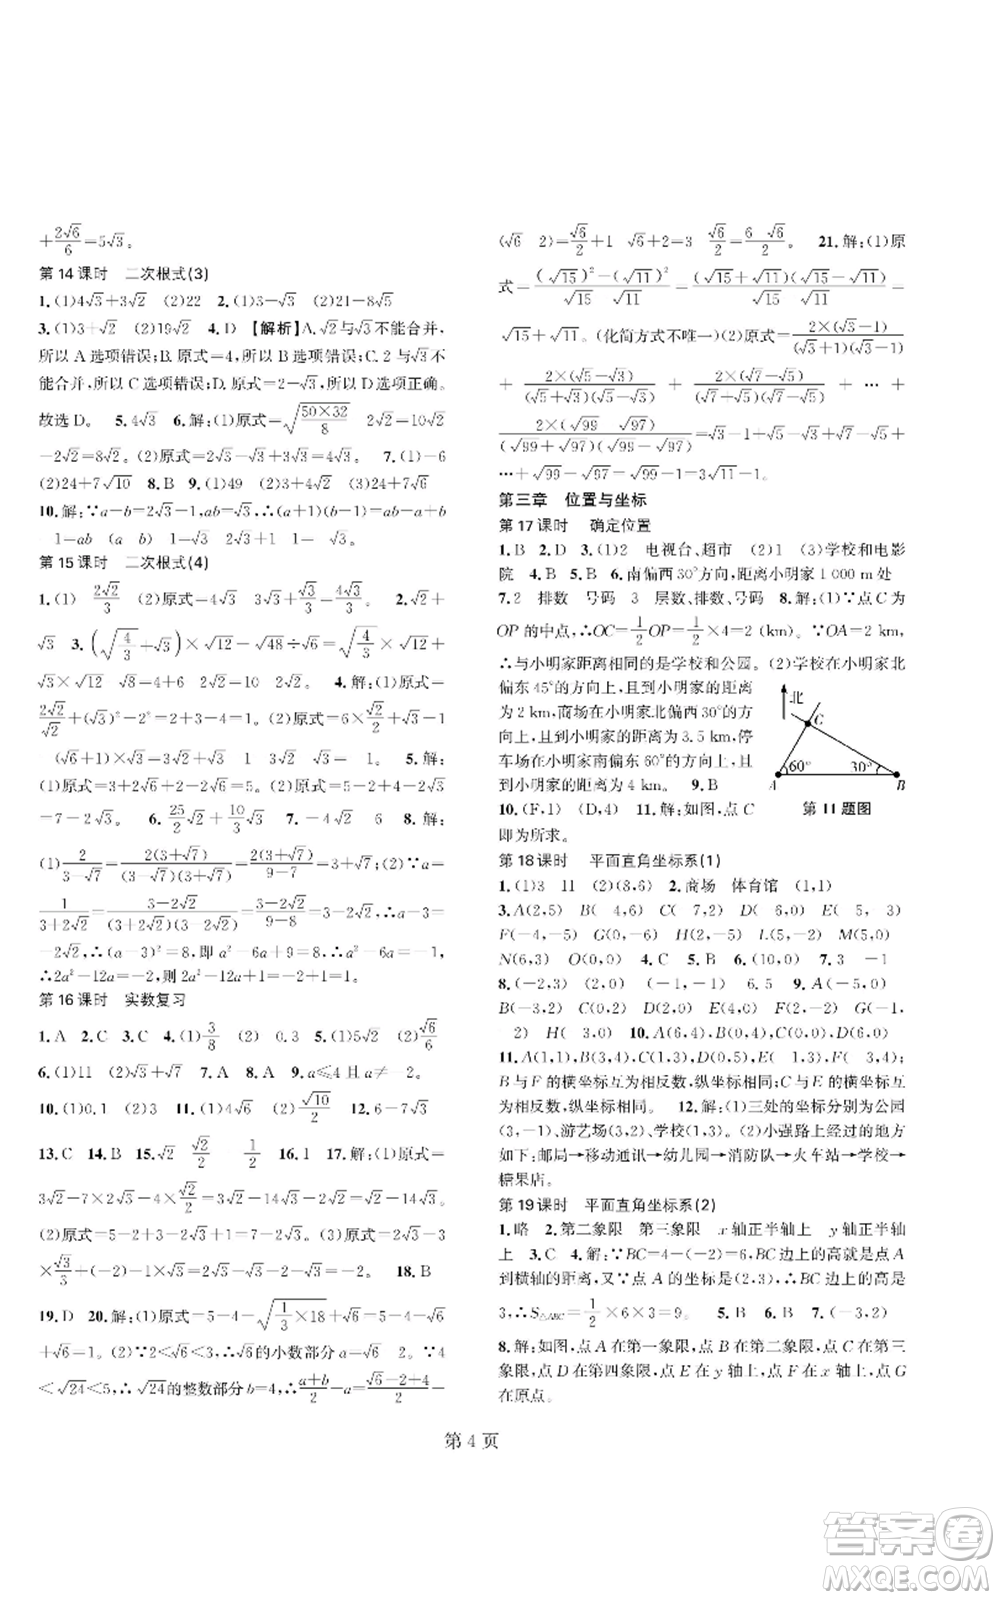 +2√6/6=5√3。
第14课时 二次根式(3)
1.(1)4√3+3√2 (2)22 2.(1)3-√3 (2)21-8√5
3.(1)3+√2 (2)19√2 4.D 【解析】A.√2与√3不能合并,
所以A选项错误;B.原式=4,所以B选项错误;C.2与√3不
能合并,所以C选项错误;D.原式=2-√3,所以D选项正确。
故选D。 5.4√3 6.解:(1)原式=√(50×32/8) 2√2=10√2
-2√2=8√2。(2)原式=2√3-√3+3√3=4√3。 7.(1)-6
(2)24+7√10 8.B 9.(1)49 (2)3+4√3 (3)24√2
10.解:∵a-b=2√3-1,ab=√3,∴(a+1)(b-1)=
1-ab (a-b)=√3。
第15课时 二次根式(4)
1.(1) 2√2/3 (2)原式=4√3 3√3+√3/3=4√3/3。 2.√2+
√3 3.(√(4/3)+√3)×√12-√48÷√6=√(4/3)×√12+
√3×√12 √8=4+6 2√2=10-2√2。 4.解:(1)原式=
2√2/√2+(√3)²-2²=2+3-4=1。(2)原式=6×√2/2+√3-1
(√6+1)×√3=3√2+√3 1 3√2 √3= 1。 5.解:
(1)原式=3+2√6+2-2√6=5。(2)原式=5-4-3-4√3-4
=-7-4√3。 6. 25/2√2+10/3√3 7.√6 6 8.解:
(1) 2/(3 √7)=2(3+√7)/(3 √7)(3+√7)=2(3+√7)/9-7=3+√7。(2)∵a=
1/(3+2√2)=3-2√2/(3+2√2)(3 2√2)=3-2√2/9-8=3-2√2,∴a-3=
-2√2,∴(a-3)²=8,即a²-6a+9=8,∴a²-6a=-1,∴
2a²-12a=-2,则2a²-12a+1=-1。
第16课时 实数复习
1.A 2.C 3.C 4.(1) 3/8 (2) 0.3 5.(1)5√2 (2)√6/6
6.(1)11 (2)√3+√2 7.A 8.A 9.a≤4且a≠-2
10.(1)0.1 (2)3 11.(1)4√6 (2)√10/2 12.6-7√3
13.C 14.B 15.√2 √2/2 1/2 16.1 17.解:(1)原式=
3√2-7×2√3+5×4√3-4×√2/2=3√2-14√3+20√3-2√2=
(2)原式=5-2-4+2=1。(3)原式=6√3-3
×√3/3+(-2)×2√3=6√3-√3-4√3=√3。 18.B
19.D 20.解:(1)原式=5-4-√(1/3×18)+√6=5-4-√6
+√6=1。(2)∵2<√6<3,∴√6的小数部分a=√6 2。∵4
<√24<5,∴√24的整数部分b=4,∴a+b/2-a=√6-2+4/2-
(√6 2)=√6/2+1 √6+2=6 √6/2。 21.解:(1)原
式=(√15)²-(√11)²/√15 √11=(√15+√11)(√15-√11)/√15 √11=
√15+√11。(化简方式不唯一)(2)原式=2×(√3-1)/(√3+1)(√3-1)
+ 2×(√5-√3)/(√5+√3)(√5-√3) + 2×(√7-√5)/(√7+√5)(√7-√5) + ··· +
2×(√99 √97)/(√99+√97)(√99-√97)=√3-1+√5-√3+√7-√5+
···+√99-√97=√99-1=3√11-1。
第三章 位置与坐标
第17课时 确定位置
1.B 2.D 3.(1)2 电视台、超市 (2)1 (3)学校和电影
院 4.B 5.B 6.南偏西30°方向,距离小明家1 000 m处
7.2 排数 号码 3 层数、排数、号码 8.解:(1)∵点C为
OP的中点,∴OC=1/2OP=1/2×4=2(km)。∵OA=2 km,
∴与小明家距离相同的是学校和公园。(2)学校在小明家北
偏东45°的方向上,且到小明家的距离
为2 km,商场在小明家北偏西30°的方
向上,且到小明家的距离为3.5 km,停
车场在小明家南偏东60°的方向上,且
到小明家的距离为4 km。 9.B
10.(F,1) (D,4) 11.解:如图,点C
即为所求。
北
C
60° 30°
A B
第11题图
第18课时 平面直角坐标系(1)
1.(1)3 11 (2)(8,6) 2.商场 体育馆 (1,1)
3.A(2,5) B( 4,6) C( 7,2) D( 6,0) E( 5, 3)
F( 4,-5) G(0,-6) H(2, 5) L(5,-2) M(5,0)
N(6,3) O(0,0) 4.C 5.B 6.(-3,-2) 7.3 -1
8.(-2,3) (-1,-1) 6.5 9.解:A(-2,0)
B(-3,-2) C(0,2) D(2,1) E(4,0) F(2,-1) G(0,
-2) H( 3,0) 10.A(6,4),B(0,4),C(0,0),D(6,0)
11.A(1,1),B( 3,3),C(3,5),D( 1,4),F( 3,4);
B与F的横坐标互为相反数,纵坐标相同;C与E的横坐标互
为相反数,纵坐标相同。 12.解:(1)三处的坐标分别为公园
(3,-1),游艺场(3,2),学校(1,3)。(2)小强路上经过的地方
如下:邮局→移动通讯→幼儿园→消防队→火车站→学校→
糖果店。
第19课时 平面直角坐标系(2)
1.略 2.第二象限 第三象限 x轴正半轴上 y轴正半轴
上 3.C 4.解:∵BC=4-(-2)=6,∵BC边上的高就是点A
到横轴的距离,又∵点A的坐标是( 4,3),∴BC边上的高是
3,∴S△ABC=1/2×6×3=9。 5.B 6.B 7.(-3,2)
8.解:如图,点A在第一象限,点B在第二象限,点C在第三
象限,点D在第四象限,点E在y轴上,点F在x轴上,点G
在原点。
第4页
答案圈
MXQE.COM